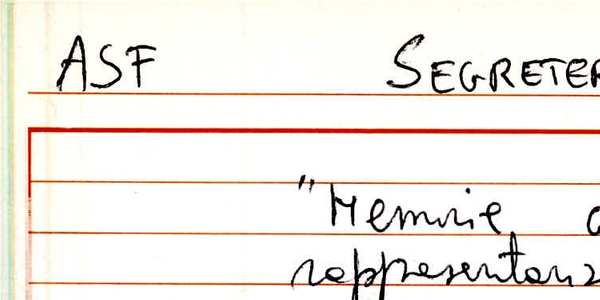 ASF SEGRETER
"Memorie
rappresentanz